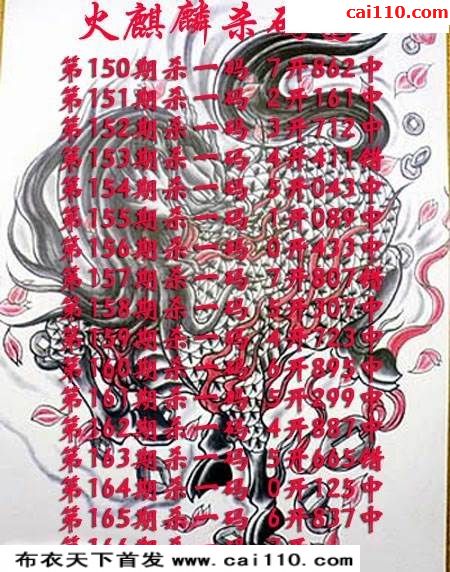 cai110.com
火麒麟杀码
第150期杀一码 7开862中
第151期杀一码 2开161中
第152期杀一码 3开712中
第153期杀一码 4开411错
第154期杀一码 5开043中
第155期杀一码 1开089中
第156期杀一码 0开433中
第157期杀一码 7开807错
第158期杀一码 5开707中
第159期杀一码 4开723中
第160期杀一码 6开895中
第161期杀一码 开899中
第162期杀一码 4开887中
第163期杀一码 5开665错
第164期杀一码 0开125中
第165期杀一码 6开817中
布衣天下首发 www.cai110.com